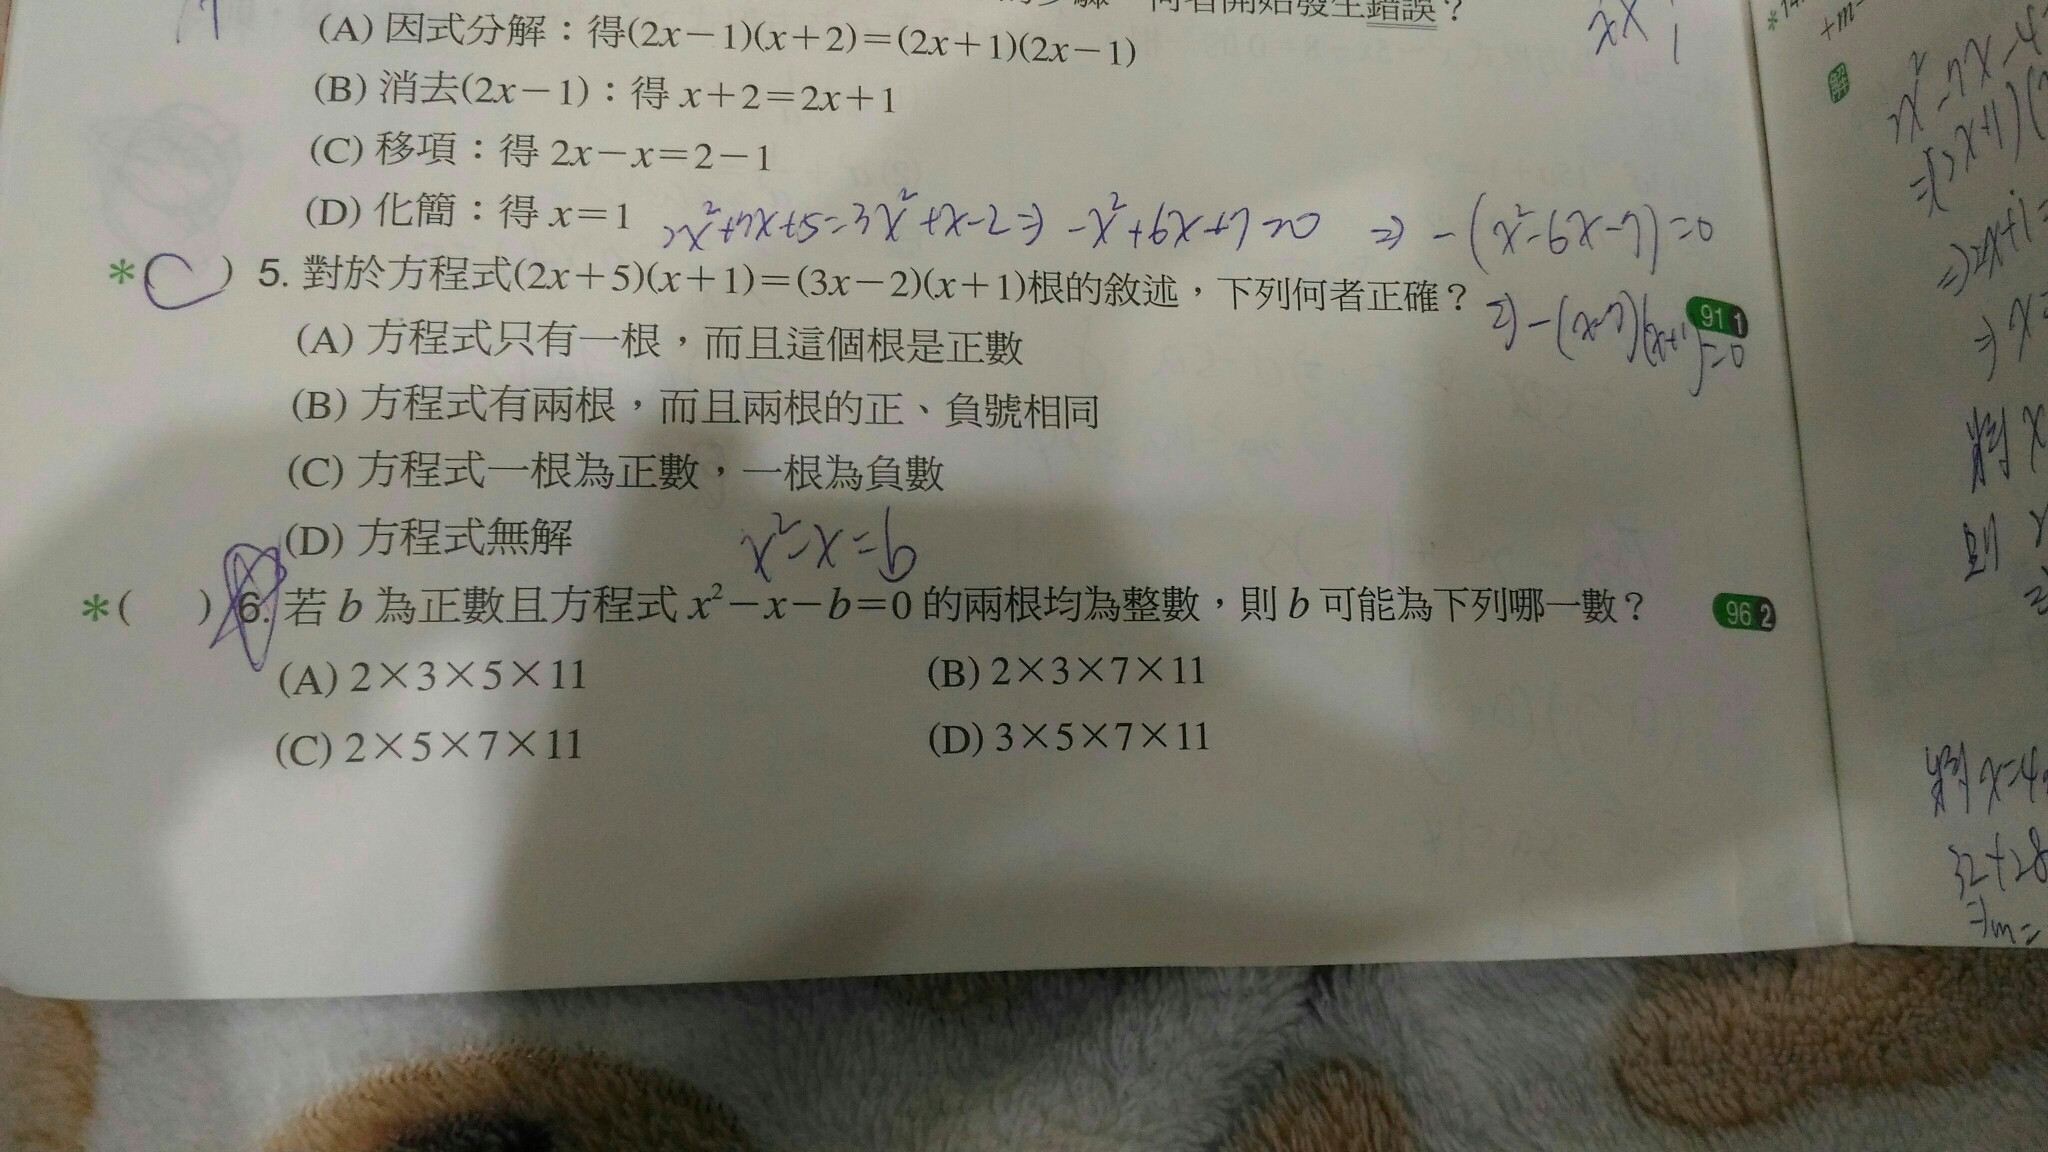 何者開始發生錯誤？
(A) 因式分解：得(2x－1)(x＋2)＝(2x＋1)(2x－1)
(B) 消去(2x－1)：得 x＋2＝2x＋1
(C) 移項：得 2x－x＝2－1
(D) 化簡：得 x＝1
*(C) 5. 對於方程式(2x＋5)(x＋1)＝(3x－2)(x＋1)根的敘述，下列何者正確？ 91 1
(A) 方程式只有一根，而且這個根是正數
(B) 方程式有兩根，而且兩根的正、負號相同
(C) 方程式一根為正數，一根為負數
(D) 方程式無解
x²-x=b
*( ) 6. 若 b 為正數且方程式 x²－x－b＝0 的兩根均為整數，則 b 可能為下列哪一數？ 96 2
(A) 2×3×5×11 (B) 2×3×7×11
(C) 2×5×7×11 (D) 3×5×7×11
解
x=4
32+28